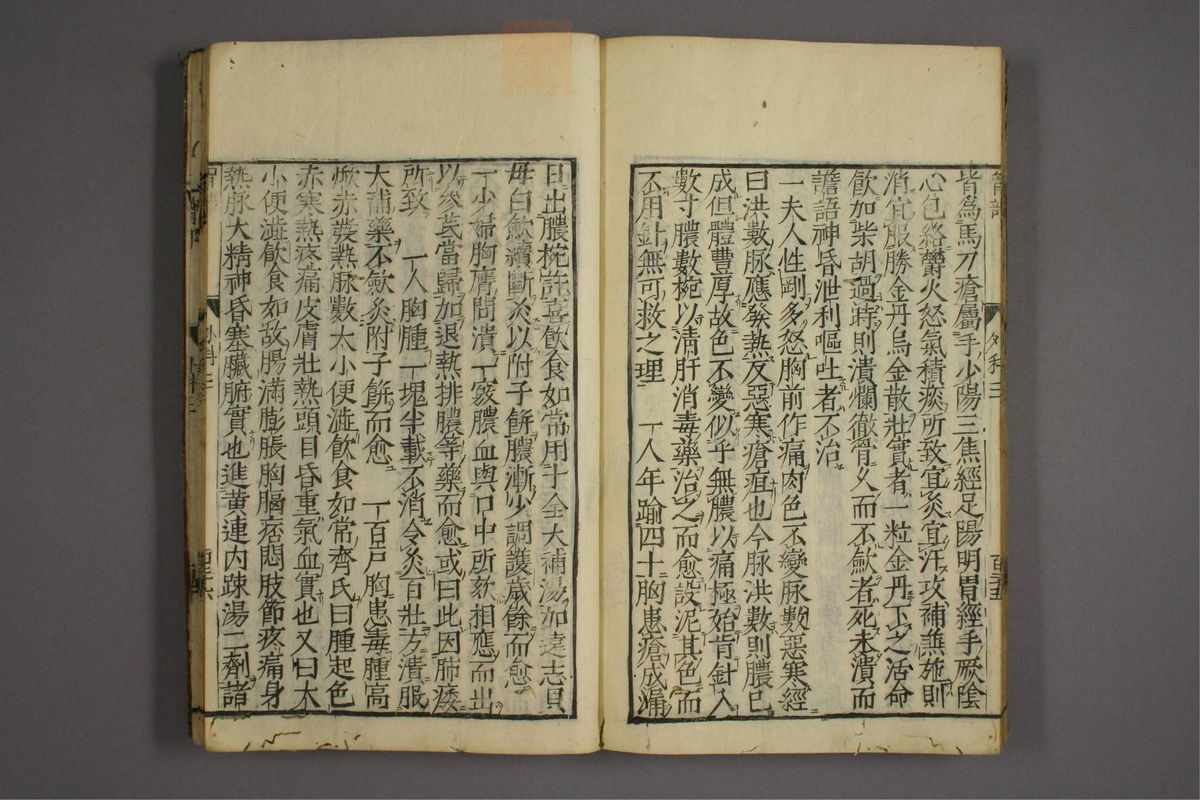 皆為馬刀瘡屬手少陽三焦經足陽明胃經手厥陰
心包絡鬱火怒氣積痰所致宜灸宜汗攻補無施則
消宜服勝金丹烏金散壯實者一粒金丹下之活命
飲如柴胡過時則潰爛徹骨久而不歛者死未潰而
譫語神昏泄利嘔吐者不治
一夫人性剛多怒胸前作痛肉色不變脉數惡寒經
曰洪數脉應發熱反惡寒瘡疽也今脉洪數則膿已
成但體豐厚故色不變似乎無膿以痛極始肯針入
數寸膿數椀以清肝消毒藥治之而愈設泥其色而
不用針無可救之理　一人年踰四十胸患瘡成漏
日出膿椀許喜飲食如常用十全大補湯加遠志貝
母白歛續斷灸以附子餅膿漸少調護歲餘而愈
一少婦胸膺間潰一竅膿血與口中所欬相應而出
以參芪當歸加退熱排膿等藥而愈或曰此因肺痿
所致　一人胸腫一塊半載不消令灸百壯方潰服
大補藥不歛灸附子餅而愈　一百戸胸患毒腫高
焮赤發熱脉數大小便澁飲食如常齊氏曰腫起色
赤寒熱疼痛皮膚壯熱頭目昏重氣血實也又曰大
小便澁飲食如故腸滿膨脹胸膈痞悶肢節疼痛身
熱脉大精神昏塞臟腑實也進黄連内疎湯二劑諸
外科三